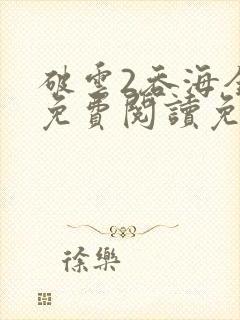 破雲2吞海全
免費閱讀免
徐樂